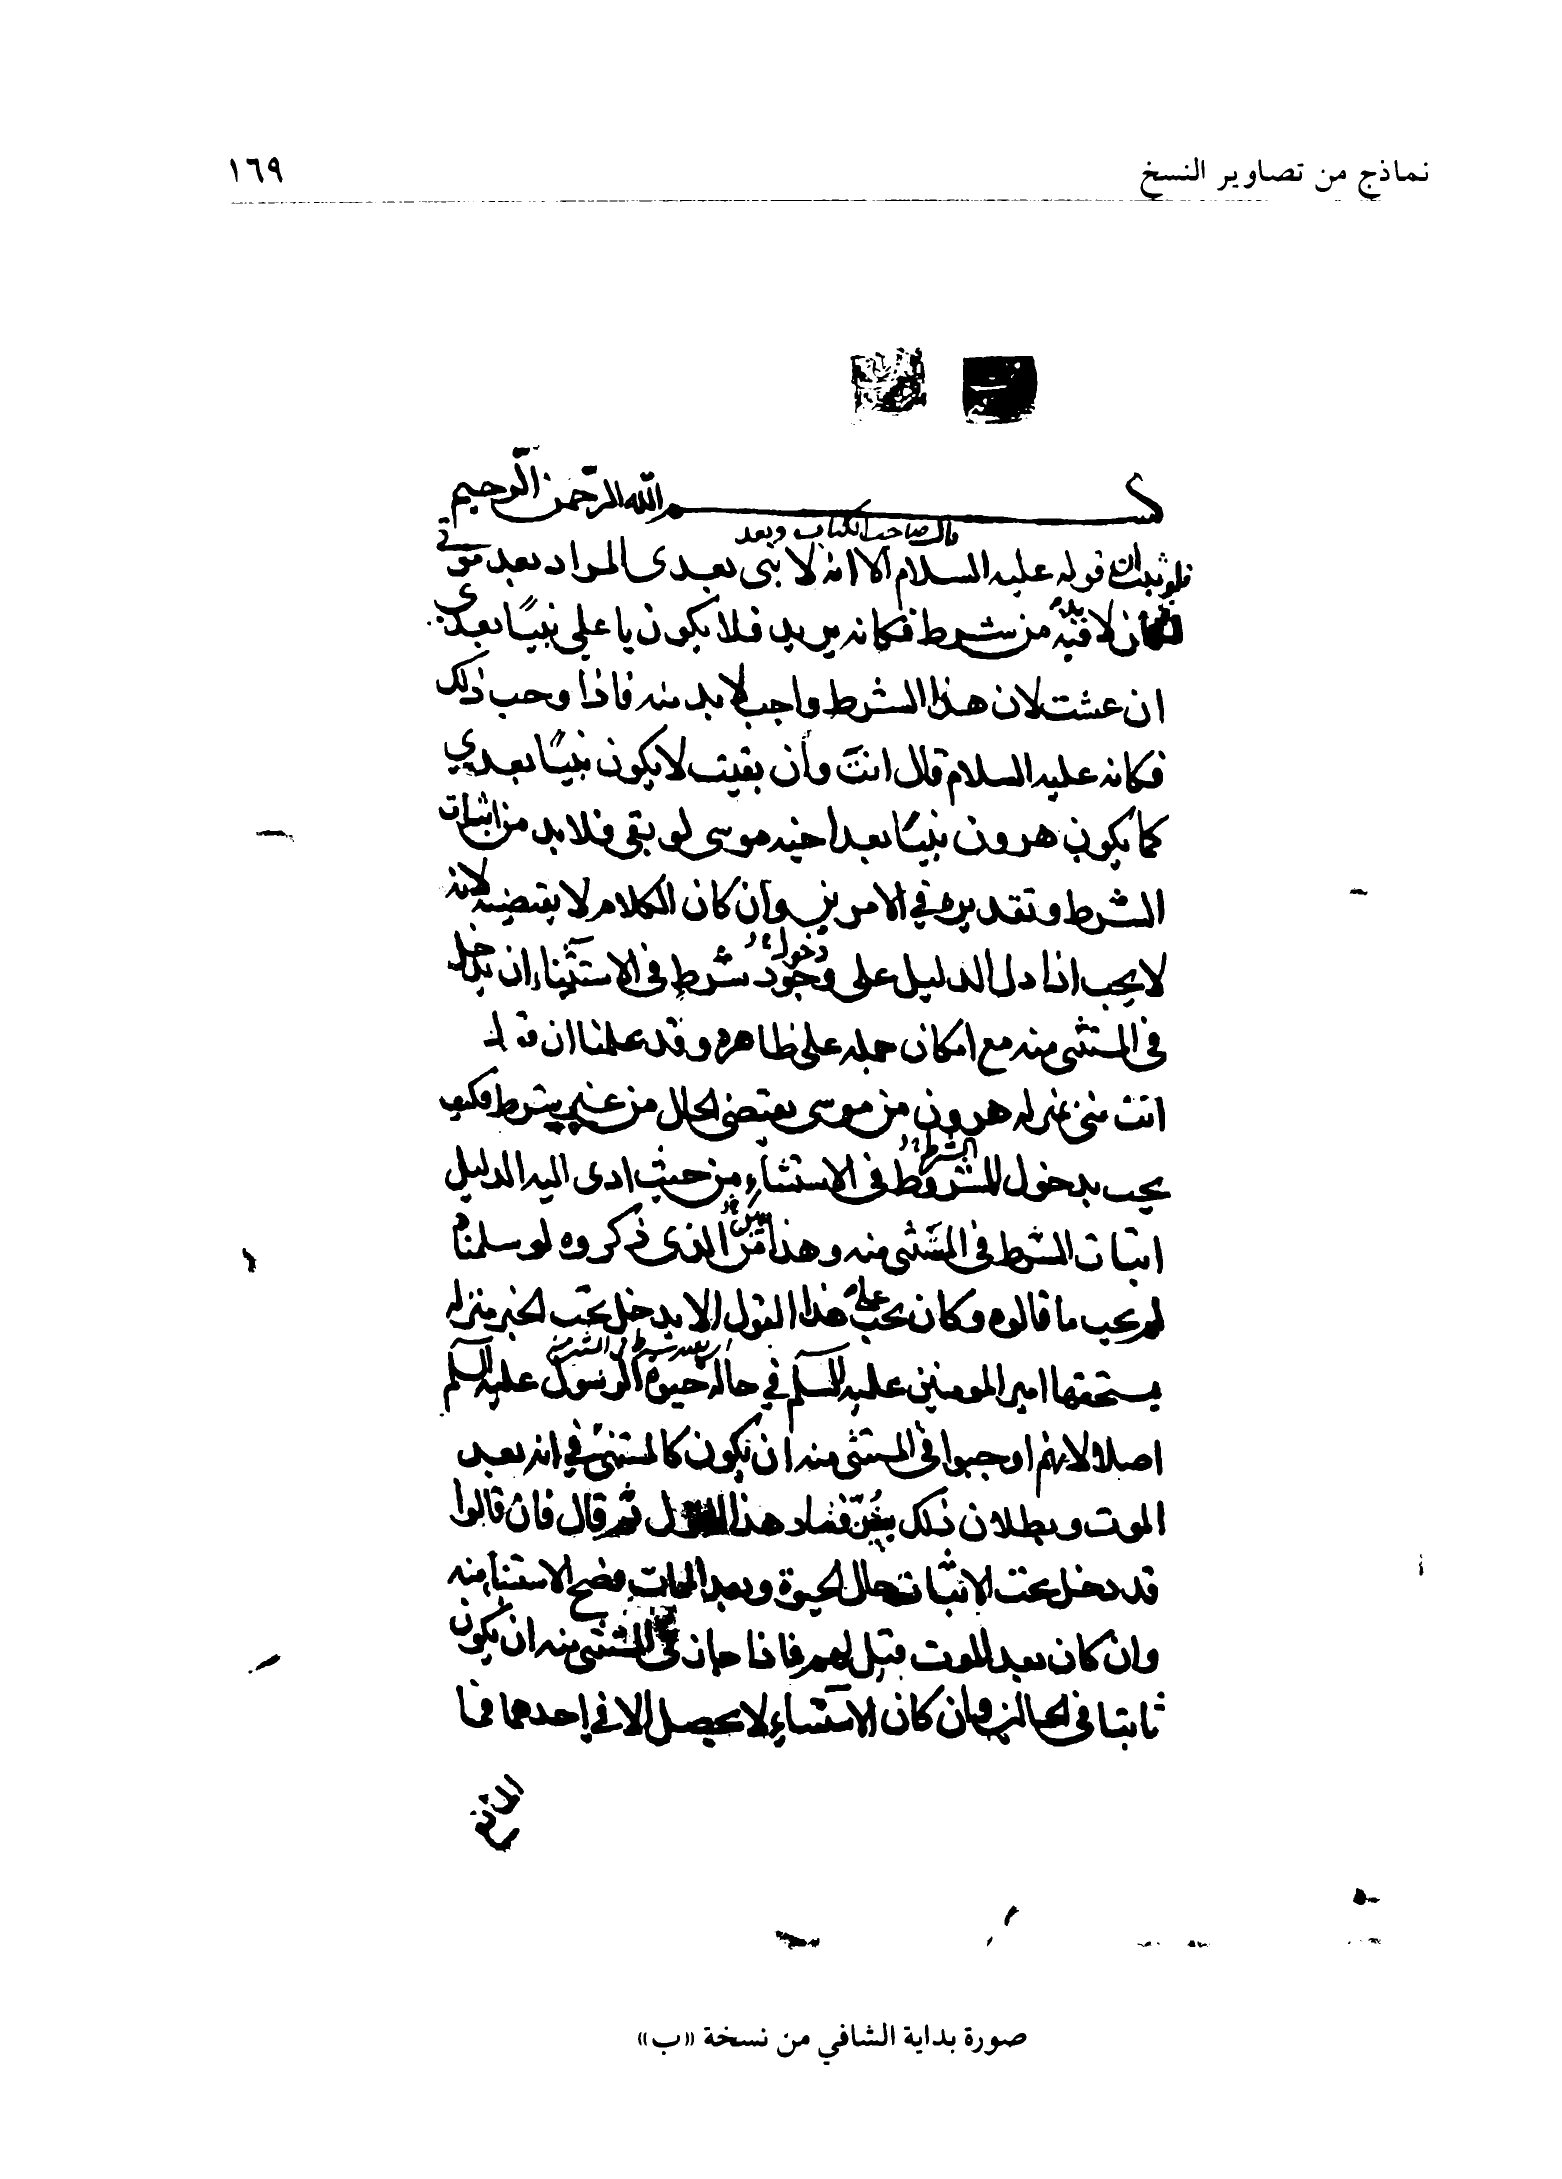 نماذج من تصاوير النسخ
١٦٩
بسم الله الرحمن الرحيم
قال صاحب الكتاب وبعد
فلو ثبت ان قوله عليه السلام الا انه لا نبي بعدى المراد بعد موتى
لكان لا بد فيه من شرط فكانه يريد فلا يكون يا علي نبيًا بعدي
ان عشت لان هذا الشرط واجب لا بد منه فاذا وجب ذلك
فكانه عليه السلام قال انت وأن بقيت لا يكون نبيًا بعدي
كما يكون هرون نبيًا بعد اخيه موسى لو بقى فلا بد من اثبات
الشرط وتقديره في الامرين وان كان الكلام لا يقتضيه لانه
دخول
لا يجب اذا دل الدليل على وجود شرط في الاستثناء ان يدخل
في المستثنى منه مع امكان حمله على ظاهره وقد علمنا ان قوله
انت منى بمنزله هرون من موسى يقتضى الحال من غير شرط فكيف
الشرط
يجب بدخول المشروط في الاستثناء من حيث ادى اليه الدليل
اثبات الشرط في المستثنى منه وهذا الذى ذكروه لو سلمناه
لم يجب ما قالوه وكان يجب على هذا القول الا يدخل تحت الخبر منزله
يستحقها امير المومنين عليه السلم في حاله حيوة الرسول عليه السلم
اصلا لانهم اوجبوا في المستثنى منه ان يكون كالمستثنى في انه بعد
الموت وبطلان ذلك يبين فساد هذا القول ثم قال فان قالوا
قد دخل تحت الاثبات حال الحيوة وبعد الممات فصح الاستثناء منه
وان كان بعد الموت قيل لهم فاذا جاز في المستثنى منه ان يكون
ثابتا في الحالين وان كان الاستثناء لا يحصل الا في إحدهما فما
المانع
صورة بداية الشافي من نسخة «ب»